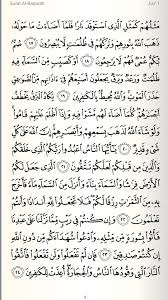 Surah Al-Baqarah Juz' 1
مَثَلُهُمْ كَمَثَلِ الَّذِي اسْتَوْقَدَ نَارًا فَلَمَّا أَضَاءَتْ مَا حَوْلَهُ
ذَهَبَ اللَّهُ بِنُورِهِمْ وَتَرَكَهُمْ فِي ظُلُمَاتٍ لَا يُبْصِرُونَ ١٧
صُمٌّ بُكْمٌ عُمْيٌ فَهُمْ لَا يَرْجِعُونَ ١٨ أَوْ كَصَيِّبٍ مِنَ السَّمَاءِ فِيهِ
ظُلُمَاتٌ وَرَعْدٌ وَبَرْقٌ يَجْعَلُونَ أَصَابِعَهُمْ فِي آذَانِهِمْ مِنَ الصَّوَاعِقِ
حَذَرَ الْمَوْتِ وَاللَّهُ مُحِيطٌ بِالْكَافِرِينَ ١٩ يَكَادُ الْبَرْقُ يَخْطَفُ
أَبْصَارَهُمْ كُلَّمَا أَضَاءَ لَهُمْ مَشَوْا فِيهِ وَإِذَا أَظْلَمَ عَلَيْهِمْ قَامُوا
وَلَوْ شَاءَ اللَّهُ لَذَهَبَ بِسَمْعِهِمْ وَأَبْصَارِهِمْ إِنَّ اللَّهَ عَلَى كُلِّ
شَيْءٍ قَدِيرٌ ٢٠ يَا أَيُّهَا النَّاسُ اعْبُدُوا رَبَّكُمُ الَّذِي خَلَقَكُمْ
وَالَّذِينَ مِنْ قَبْلِكُمْ لَعَلَّكُمْ تَتَّقُونَ ٢١ الَّذِي جَعَلَ لَكُمُ
الْأَرْضَ فِرَاشًا وَالسَّمَاءَ بِنَاءً وَأَنْزَلَ مِنَ السَّمَاءِ مَاءً فَأَخْرَجَ
بِهِ مِنَ الثَّمَرَاتِ رِزْقًا لَكُمْ فَلَا تَجْعَلُوا لِلَّهِ أَنْدَادًا وَأَنْتُمْ
تَعْلَمُونَ ٢٢ وَإِنْ كُنْتُمْ فِي رَيْبٍ مِمَّا نَزَّلْنَا عَلَى عَبْدِنَا
فَأْتُوا بِسُورَةٍ مِنْ مِثْلِهِ وَادْعُوا شُهَدَاءَكُمْ مِنْ دُونِ اللَّهِ
إِنْ كُنْتُمْ صَادِقِينَ ٢٣ فَإِنْ لَمْ تَفْعَلُوا وَلَنْ تَفْعَلُوا فَاتَّقُوا
النَّارَ الَّتِي وَقُودُهَا النَّاسُ وَالْحِجَارَةُ أُعِدَّتْ لِلْكَافِرِينَ ٢٤